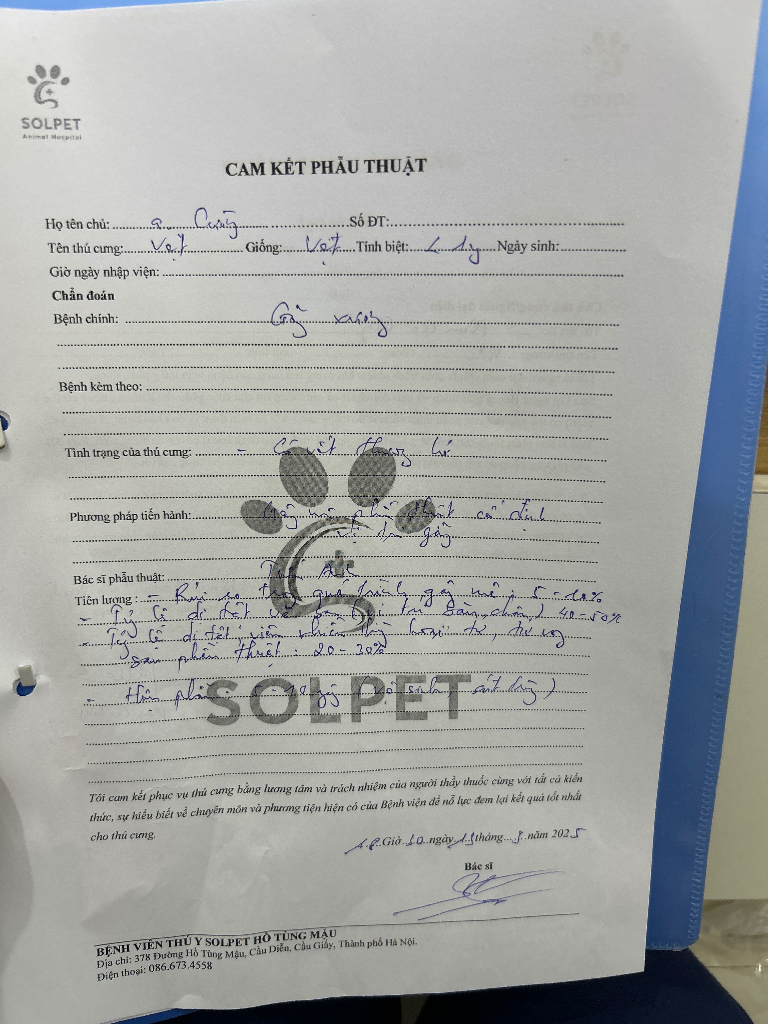 SOLPET
Animal Hospital
CAM KẾT PHẪU THUẬT
Họ tên chủ: a Cường Số ĐT:
Tên thú cưng: Vẹt Giống: Vẹt Tính biệt: Ngày sinh:
Giờ ngày nhập viện:
Chẩn đoán
Bệnh chính: Gãy xương
Bệnh kèm theo:
Tình trạng của thú cưng: - Có vết thương hở
Phương pháp tiến hành: Gây mê phẫu thuật cố định
vị trí gãy
Bác sĩ phẫu thuật:
Tiên lượng : - Rủi ro trong quá trình gây mê : 5 - 10%
- Tỷ lệ di tật về bàn, chân) 40-50%
- Tỷ lệ di tật, viêm nhiễm, hoại tử, tử vong
sau phẫu thuật : 20-30%
- Hậu phẫu : ngày (vệ sinh, )
SOLPET
Tôi cam kết phục vụ thú cưng bằng lương tâm và trách nhiệm của người thầy thuốc cùng với tất cả kiến
thức, sự hiểu biết về chuyên môn và phương tiện hiện có của Bệnh viện để nỗ lực đem lại kết quả tốt nhất
cho thú cưng.
Giờ ngày tháng năm 2025
Bác sĩ
BỆNH VIỆN THÚ Y SOLPET HỒ TÙNG MẬU
Địa chỉ: 378 Đường Hồ Tùng Mậu, Cầu Diễn, Cầu Giấy, Thành phố Hà Nội.
Điện thoại: 086.673.4558